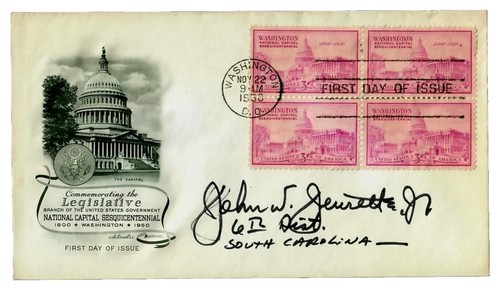 WASHINGTON
NOV 22
9-AM
1950
D.C.
FIRST DAY OF ISSUE
WASHINGTON
NATIONAL CAPITAL
SESQUICENTENNIAL
3¢
UNITED STATES OF AMERICA
WASHINGTON
NATIONAL CAPITAL
SESQUICENTENNIAL
3¢
WASHINGTON
NATIONAL CAPITAL
SESQUICENTENNIAL
3¢
UNITED STATES OF AMERICA
WASHINGTON
NATIONAL CAPITAL
SESQUICENTENNIAL
3¢
UNITED STATES OF AMERICA
THE CAPITOL
Commemorating the
Legislative
BRANCH OF THE UNITED STATES GOVERNMENT
NATIONAL CAPITAL SESQUICENTENNIAL
1800 ★ WASHINGTON ★ 1950
FIRST DAY OF ISSUE
John W. Jenrette, Jr
6th Dist.
SOUTH CAROLINA